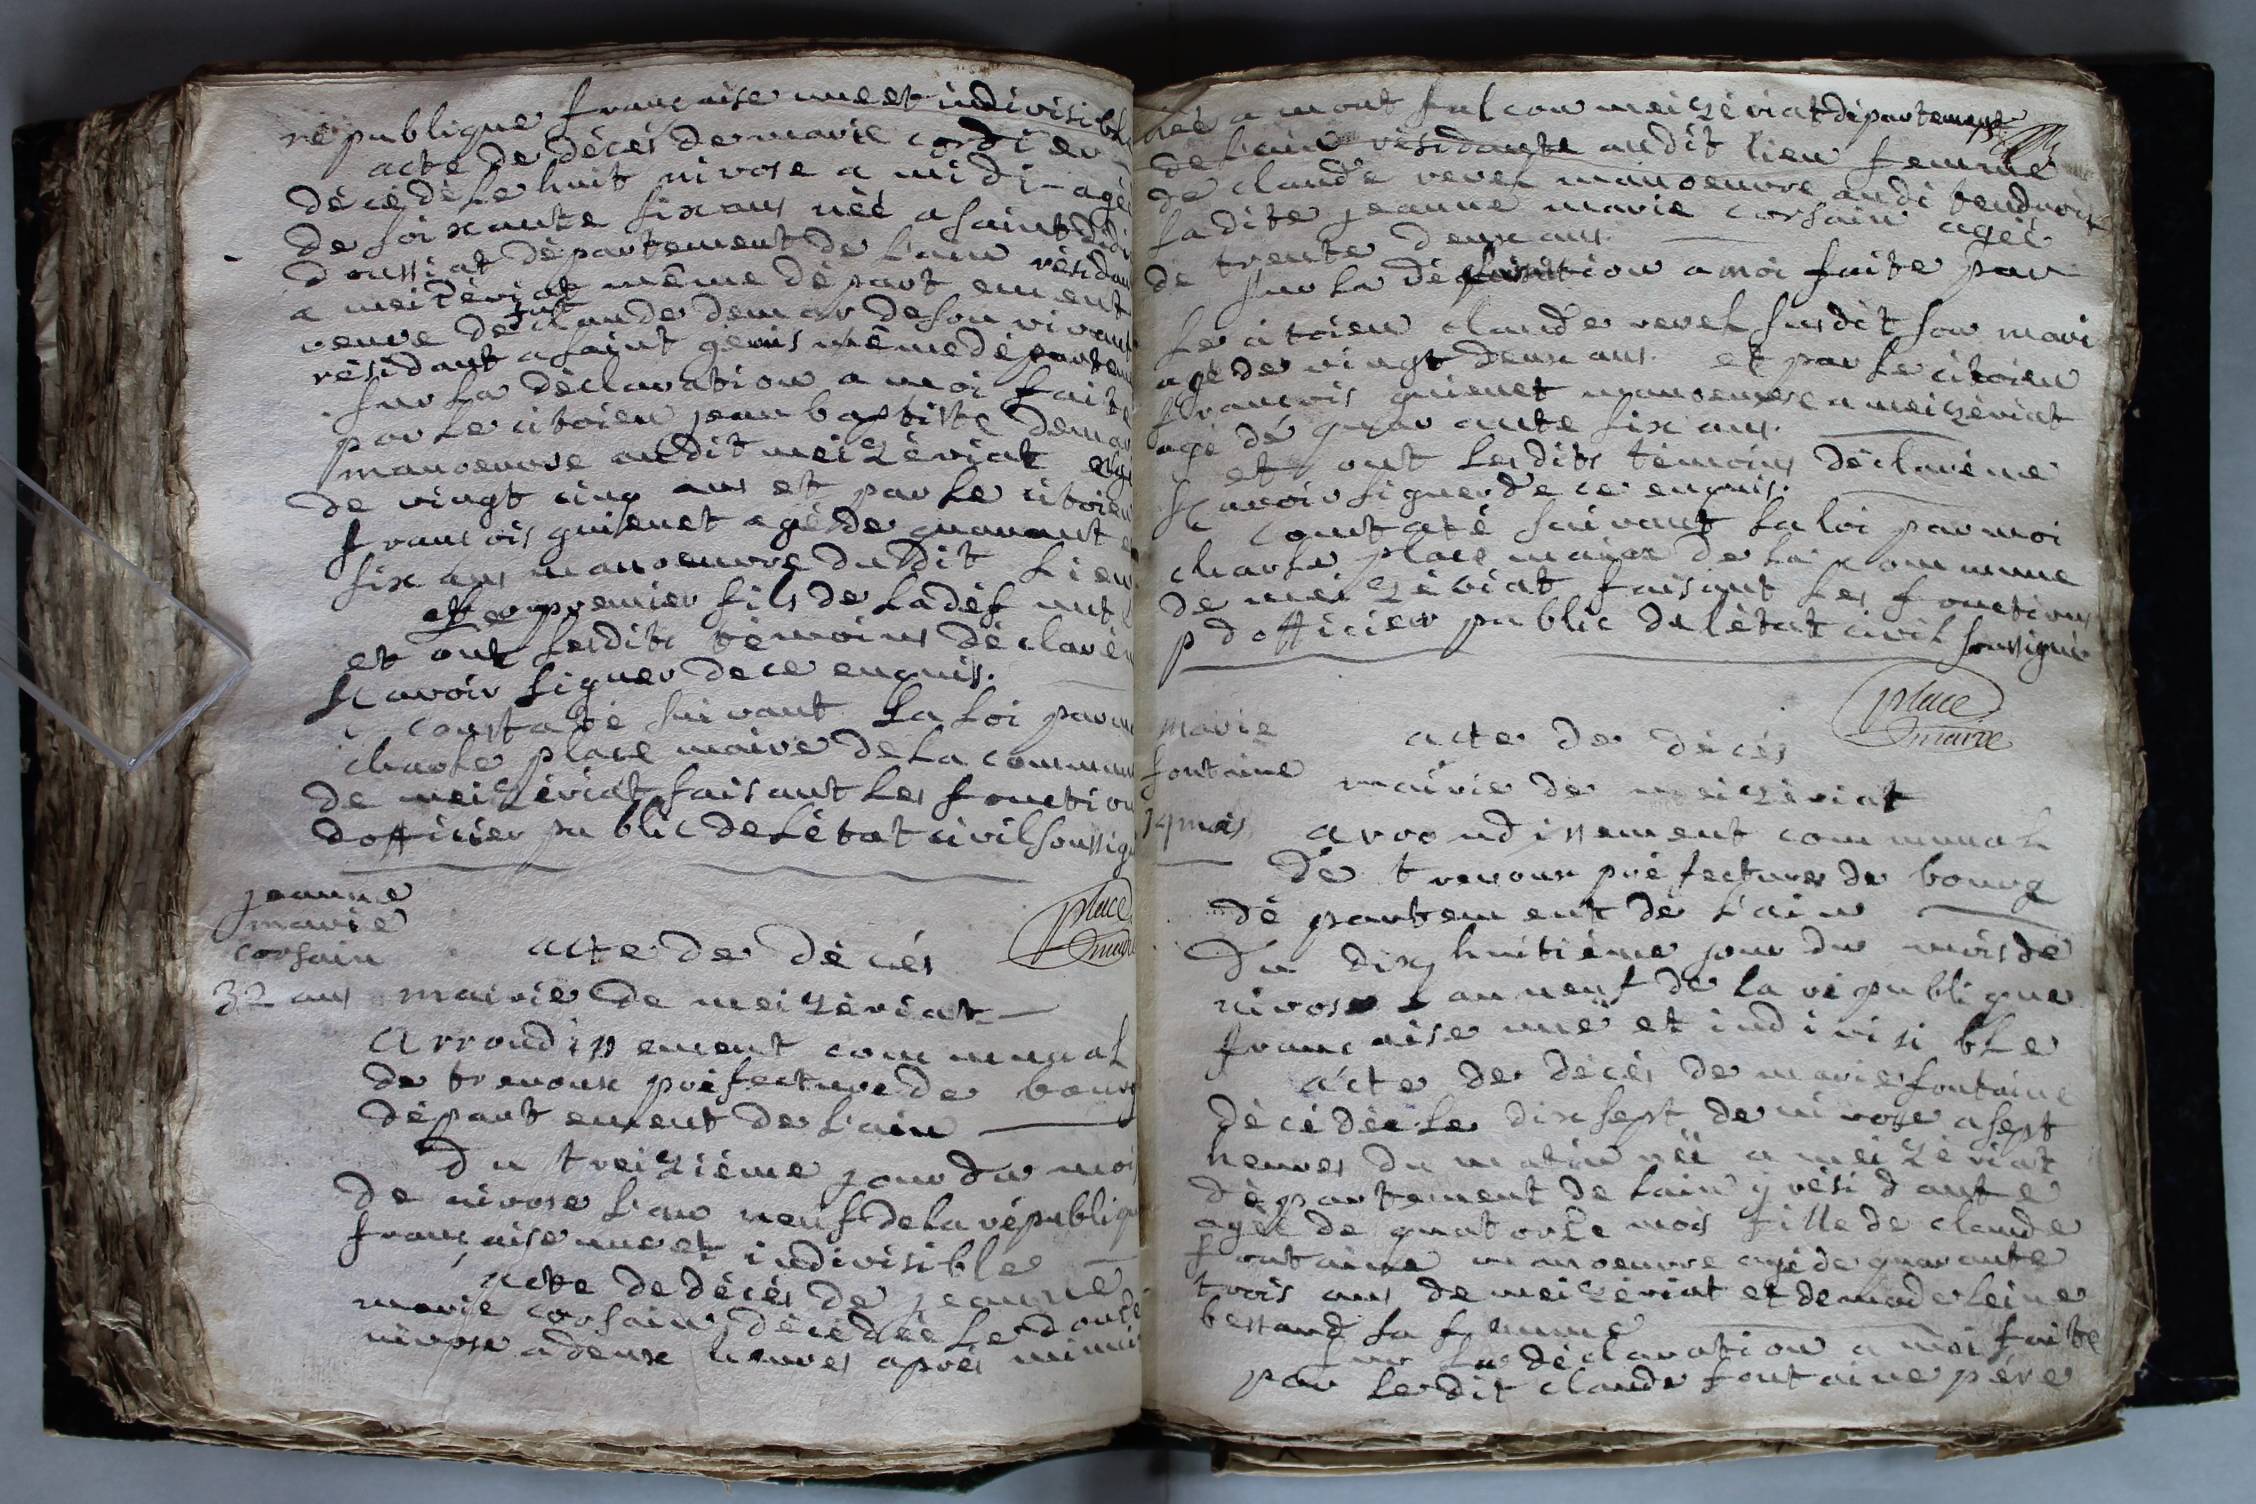 république française une et indivisible
acte de décés de marie cordier
décédée le huit nivose a midi agée
de soixante six ans née a saint didi
doussiat département de l'ain résidan
a meizériat même département
veuve de fut claude demar de son vivant
résidant a saint genis même départem
sur la déclaration a moi faite
par le citoien jean baptiste demar
manoeuvre audit meizériat agé
de vingt cinq ans et par le citoien
françois guienet agé de quarante
six ans manoeuvre dudit lieu
et le premier fils de la défunte
et ont lesdits témoins déclaré n
scavoir signer de ce enquis.
constaté suivant la loi par m
charle place maire de la commun
de meizériat faisant les fonction
dofficier public de l'état civil soussig
place
maire
jeanne
marie
corsain
32 ans
acte de décés
mairie de meizériat
arrondissement communal
de trevoux préfecture de bourg
département de l'ain
du treizième jour du mois
de nivose l'an neuf de la républiqu
française une et indivisible
acte de décés de jeanne
marie corsain décédée le douse
nivose a deux heures aprés minui
née a mont falcon meizériat département
de l'ain résidante audit lieu femme
de claude revel manoeuvre audi bendroit
ladite jeanne marie corsain agée
de trente deux ans.
sur la déclaration a moi faite par
le citoien claude revel susdit son mari
agé de vingt deux ans. et par le citoien
françois guienet manoeuvre a meizériat
agé de quarante six ans.
et ont lesdits témoins déclaré ne
scavoir signer de ce enquis.
contaté suivant la loi par moi
charle place maire de la commune
de meizériat faisant les fonctions
p dofficier public de létat civil soussigné
place
maire
marie
fontaine
14 mois
acte de décés
mairie de meizériat
arrondissement communal
de trevoux préfecture de bourg
département de l'ain
du dix huitième jour du mois de
nivose l'an neuf de la république
française une et indivisible
acte de décés de marie fontaine
décédée le dix sept de nivose a sept
heures du matin née a meizériat
département de lain y résidante
agée de quatorze mois fille de claude
fontaine manoeuvre agé de quarante
trois ans de meizériat et de madeleine
bessard sa femme
sur la déclaration a moi faite
par ledit claude fontaine pére